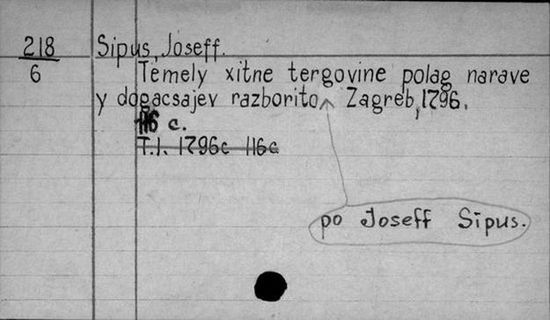 218 Sipus, Joseff.
6 Temely xitne tergovine polag narave
y dogacsajev razborito Zagreb, 1796.
116 c.
T.1. 1796c 116c
po Joseff Sipus.